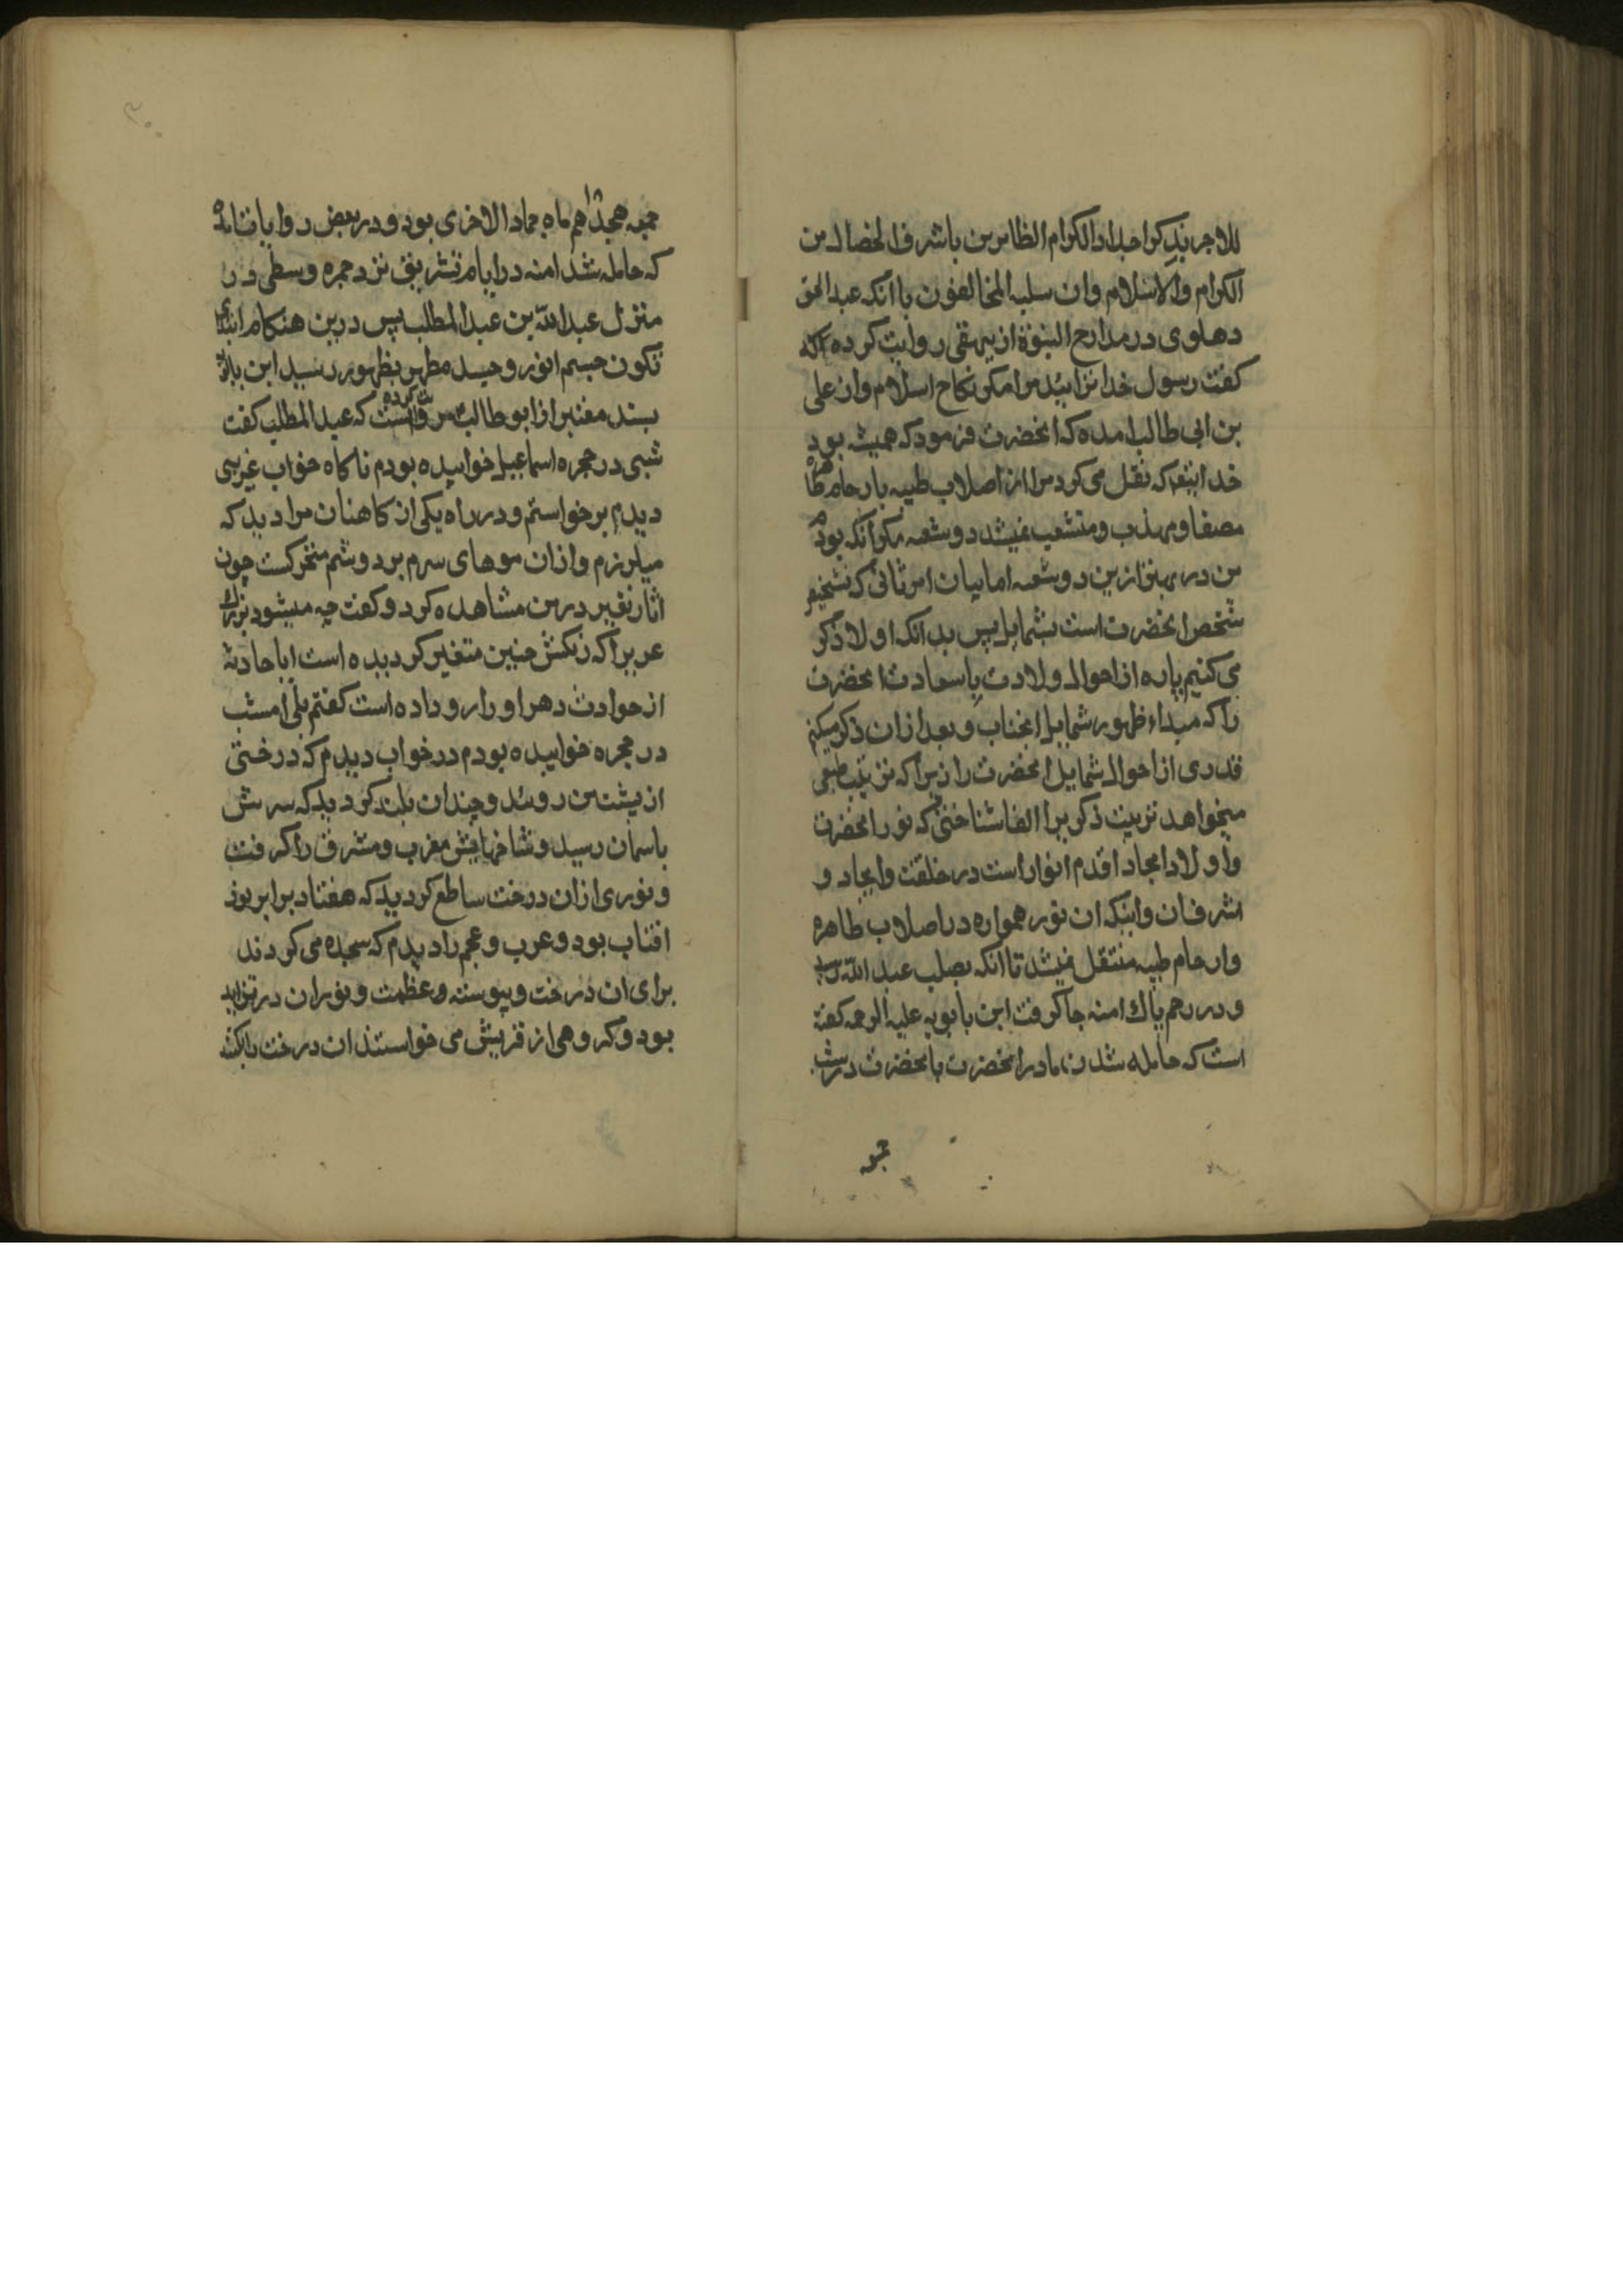 للاجر بذکر اجداد الکرام الطاهرین باشرف الخصال من
الکرام والاسلام وان سلبه المخالفون با آنکه عبد الحق
دهلوی در مدارج النبوة از بیهقی روایت کرده که
کفت رسول خدا نزائید مرا مکر نکاح اسلام وان علی
بن ابی طالب امده که انحضرت فرمود که همیشه بود
خدایتعه که نقل می کرد مرا از اصلاب طیبه بارحام طاهره
مصفا و مهذب و منتشعب نمیشد دو شعبه مکر آنکه بودم
من در بهترازین دو شعبه اما بیان امر ثانی که تشخیص
شخص انحضرت است بشمایل پس بدانکه اولا ذکر
می کنیم پاره از احوال ولادت باسعادت انحضرت
را که مبداء ظهور شمایل انجناب و بعد ازان ذکر میکنم
قدری از احوال شمایل انحضرت را زیرا که ترتیب طبعی
میخواهد تربیت ذکر برا الفا شناختی که نور انحضرت
و اولاد امجاد اقدم انوار است در خلقت و ایجاد و
اشرف ان و اینکه ان نور همواره در اصلاب طاهره
و ارحام طیبه منتقل میشد تا انکه بصلب عبد الله رسید
و در رحم پاك امنه جا کرفت ابن بابویه علیه الرحمه کفته
است که حامله شدن مادر انحضرت بانحضرت در شب
جمعه هجدهم ماه جماد الاخری بود و در بعض روایات امده
که حامله شد امنه در ایام تشریق نزد جمره وسطی در
منزل عبد الله بن عبد المطلب پس درین هنکام ابتدای
تکون جسم انور و جسد مطهر بظهور رسید ابن بابویه
بسند معتبر از ابو طالب روایت کرده است که عبد المطلب کفت
شبی در حجره اسماعیل خوابیده بودم ناکاه خواب غریبی
دیدم برخواستم و در راه یکی از کاهنان مرا دید که
میلرزم و ازان موهای سرم بر دوشم متحرکست چون
اثار تغییر در من مشاهده کرد و کفت چه میشود بزرك
عربرا که رنکش چنین متغیر کردیده است ایا حادثه
از حوادث دهر او را رو داده است کفتم بلی امشب
در حجره خوابیده بودم در خواب دیدم که درختی
از پشت من روئید و چندان بلند کردید که سرش
باسمان رسید و شاخهایش مغرب و مشرق را کرفت
و نوری ازان درخت ساطع کردید که هفتاد برابر نور
افتاب بود و عرب و عجم را دیدم که سجده می کردند
برای ان درخت و پیوسته و عظمت و نور ان در تزاید
بود و کروهی از قریش می خواستند ان درخت را بکنند
جمعه